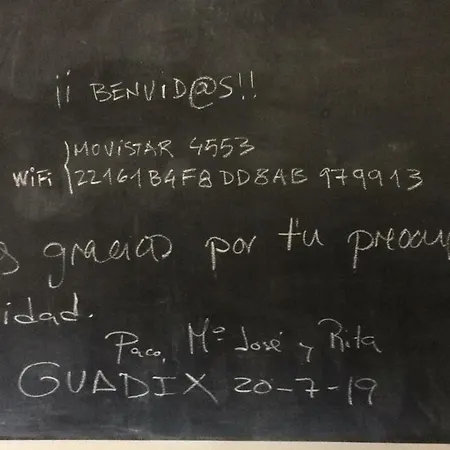 ¡¡ BENVID@S!!
MOVISTAR 4553
WiFi 22161B4F8DD8AB979913
s gracias por tu preocup
idad.
Paco, Mª José y Rita
GUADIX 20-7-19